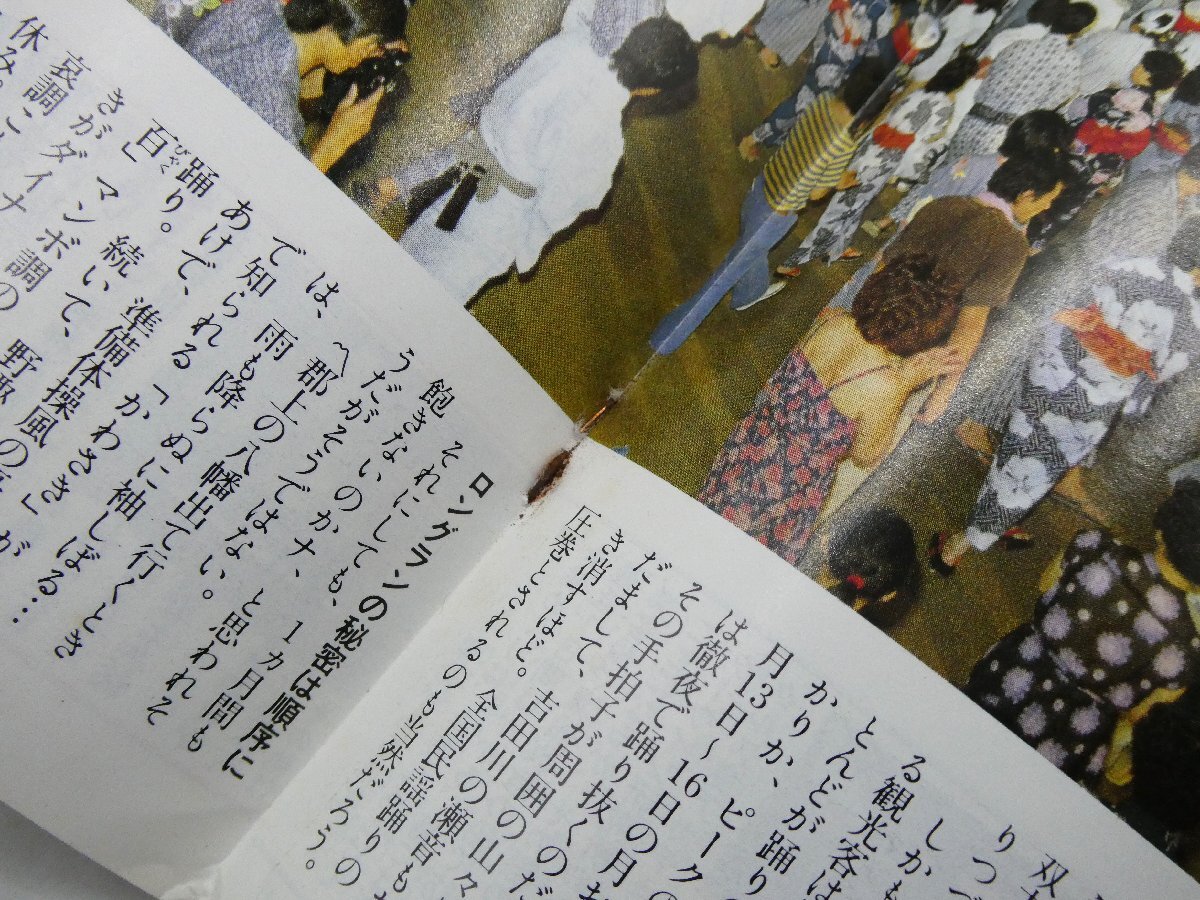 双
りつづ
しかも
る観光客は
とんどが踊り
かりか、ピークの
月13日～16日の
は徹夜で踊り抜くのだ
その手拍子が周囲の山々
だまして、吉田川の瀬音も
き消すほど。全国民謡踊りの
圧巻とされるのも当然だろう。
ロングランの秘密は順序に
それにしても、1カ月間も
飽きないのかナ、と思われそ
うだがそうではない。
〽郡上の八幡出て行くとき
は、雨も降らぬに袖しぼる…
で知られる「かわさき」が
あけで、準備体操風の
踊り。続いて、野趣
百びやく マンボ調の
きが」ダイナ
哀調
休み。